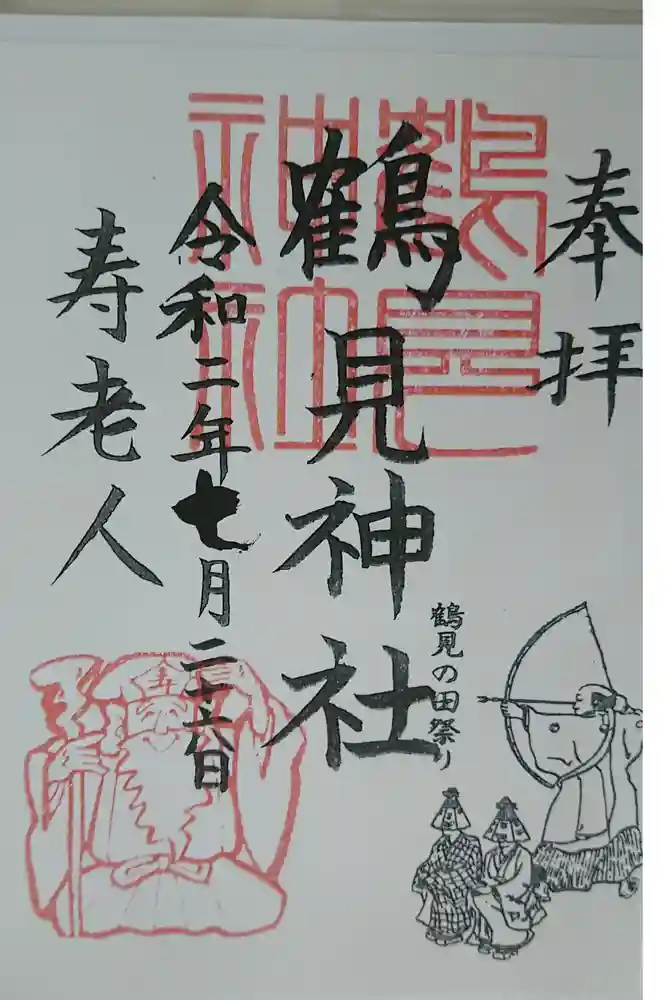 奉拝
鶴見神社
鶴見神社
鶴見の田祭り
令和二年七月二十六日
寿老人
寿